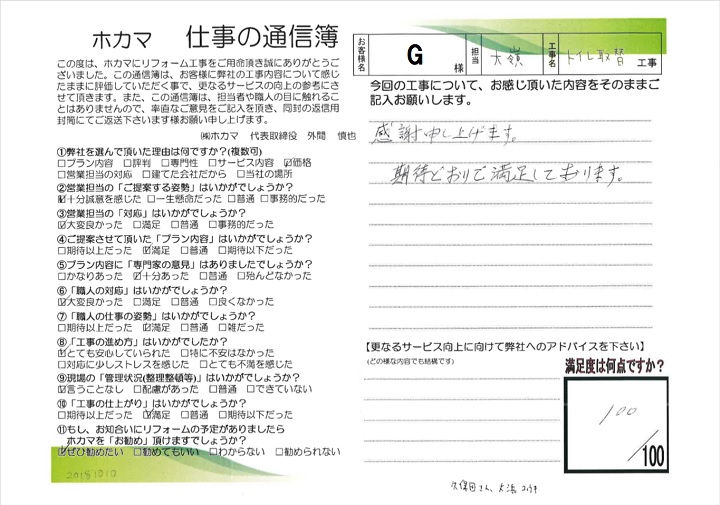 ホカマ 仕事の通信簿
この度は、ホカマにリフォーム工事をご用命頂き誠にありがとうございました。この通信簿は、お客様に弊社の工事内容について感じたままに評価していただく事で、更なるサービスの向上の参考にさせて頂きます。また、この通信簿は、担当者や職人の目に触れることはありませんので、率直なご意見をご記入を頂き、同封の返信用封筒にてご返送下さいます様お願い申し上げます。
㈱ホカマ 代表取締役 外間 愼也
①弊社を選んで頂いた理由は何ですか?(複数可)
□プラン内容 □評判 □専門性 □サービス内容 ☑価格
□営業担当の対応 □建てた会社だから □当社の場所
②営業担当の「ご提案する姿勢」はいかがでしょうか?
☑十分誠意を感じた □一生懸命だった □普通 □事務的だった
③営業担当の「対応」はいかがでしょうか?
☑大変良かった □満足 □普通 □事務的だった
④ご提案させて頂いた「プラン内容」はいかがでしょうか?
□期待以上だった ☑満足 □普通 □期待以下だった
⑤プラン内容に「専門家の意見」はありましたでしょうか?
□かなりあった ☑十分あった □普通 □殆んどなかった
⑥「職人の対応」はいかがでしょうか?
☑大変良かった □満足 □普通 □良くなかった
⑦「職人の仕事の姿勢」はいかがでしょうか?
□期待以上だった ☑満足 □普通 □雑だった
⑧「工事の進め方」はいかがでしたか?
☑とても安心していられた □特に不安はなかった
□対応に少しストレスを感じた □とても不満を感じた
⑨現場の「管理状況(整理整頓等)」はいかがでしょうか?
☑言うことなし □配慮があった □普通 □できていない
⑩「工事の仕上がり」はいかがでしょうか?
□期待以上だった ☑満足 □普通 □期待以下だった
⑪もし、お知合いにリフォームの予定がありましたら
ホカマを「お勧め」頂けますでしょうか?
☑ぜひ勧めたい □勧めてもいい □わからない □勧められない
20181010
お客様名 G 様 担当 大嶺 工事名 トイレ取替 工事
今回の工事について、お感じ頂いた内容をそのままご記入お願いします。
感謝申し上げます。
期待どおりで満足しております。
【更なるサービス向上に向けて弊社へのアドバイスを下さい】
(どの様な内容でも結構です)
満足度は何点ですか?
100
/100
久保田さん、大湾